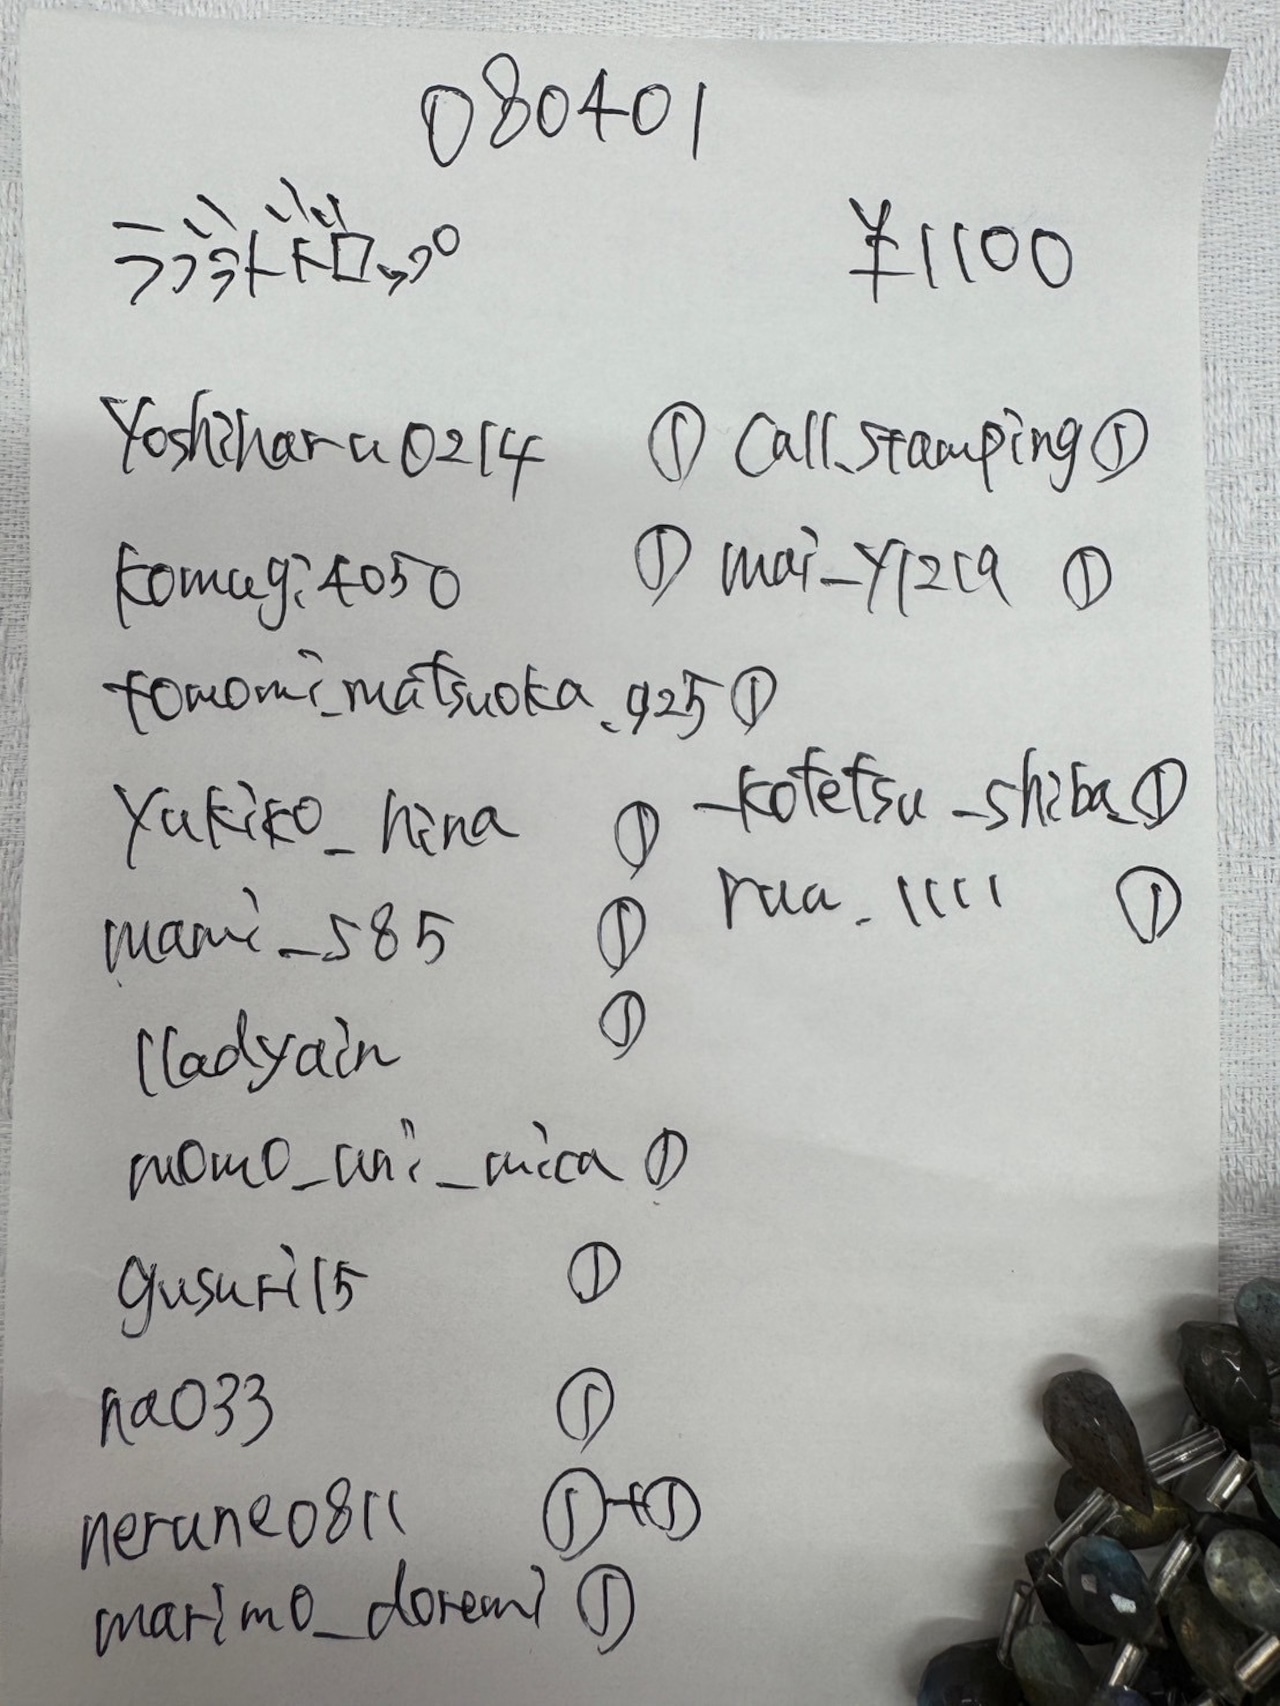 080401
ラブラドドロップ ¥1100
Yoshiharu0214 ① Call.stamping ①
komugi4050 ① mai_y1219 ①
tomomi_matsuoka.925 ①
yukiko_hina ① _kotetsu_shiba_ ①
mami_585 ① rua_1111 ①
lladyain ①
momo_uni_mica ①
gusuri15 ①
na033 ①
nerune0811 ①+①
marimo_doremi ①